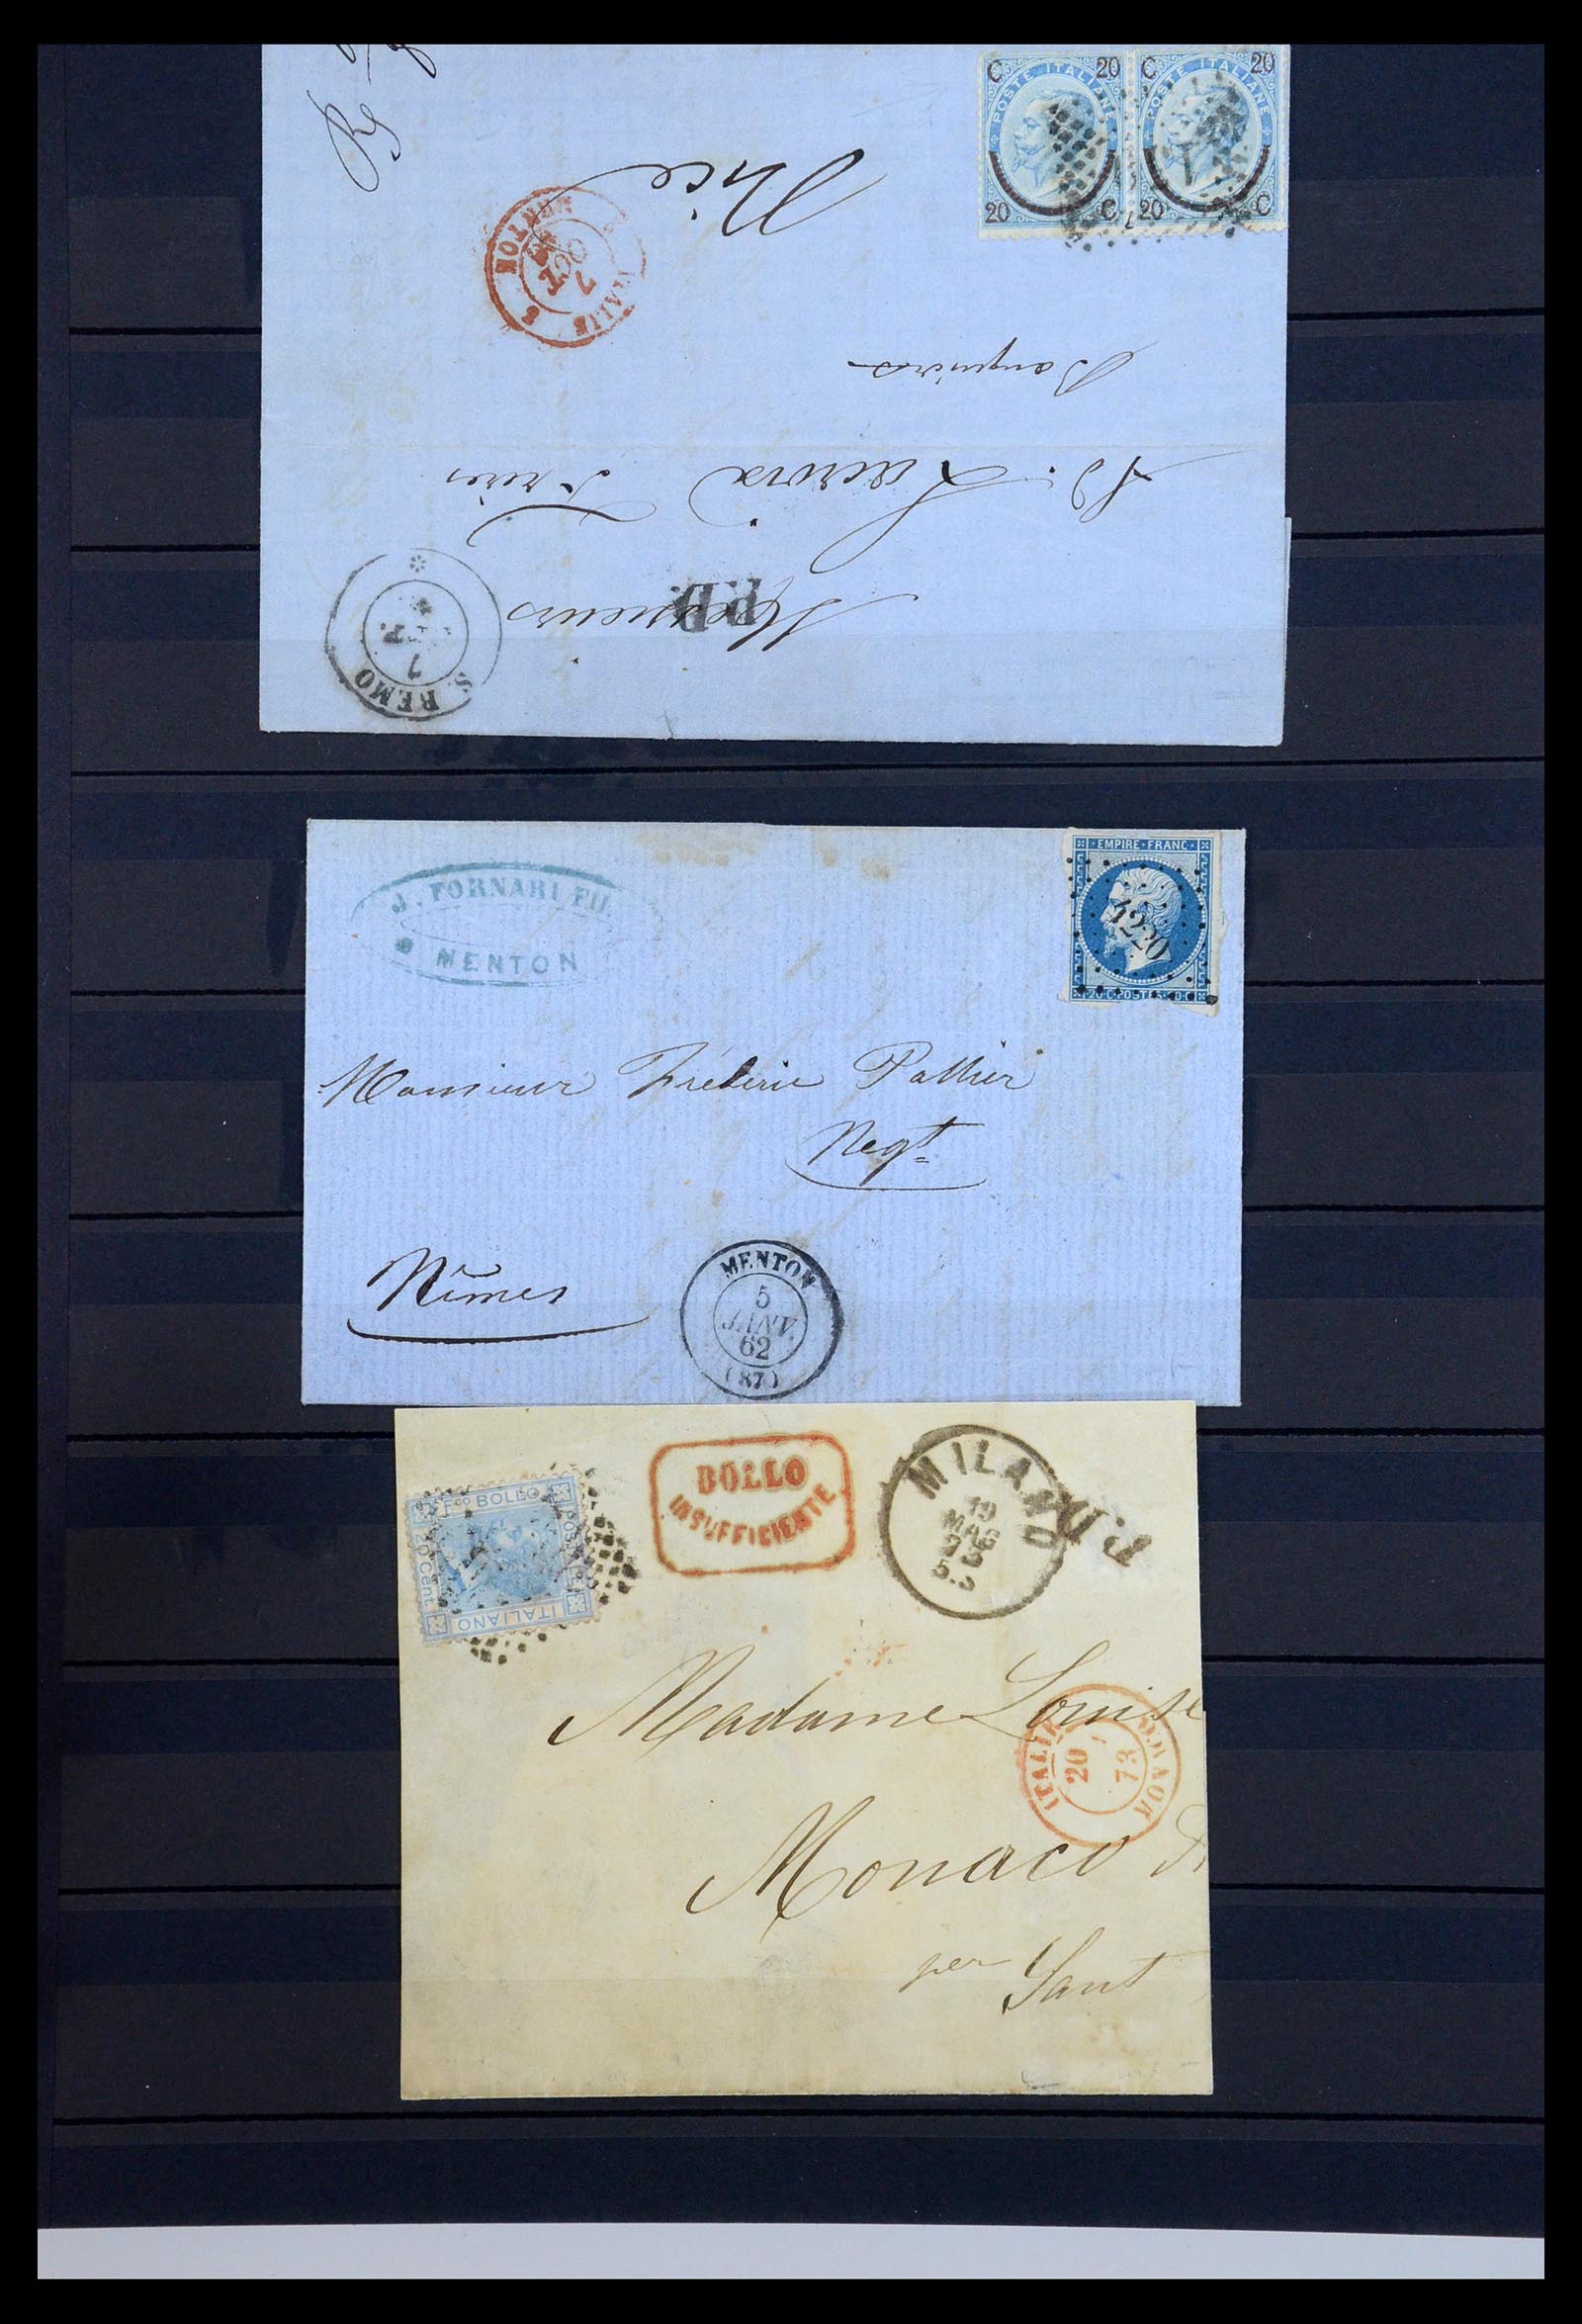 C 20
POSTE ITALIANE
20 C
C 20
POSTE ITALIANE
20 C
Nice
ITALIE
7
OCT
MENTON
Banquiers
A. Lacroix Frères
Messieurs
P.D.
S. REMO
7
J. FORNARI FILS
MENTON
EMPIRE FRANC
4220
20 C POSTES 20 C
Monsieur Fréderic Pallier
Negt
Nîmes
MENTON
5
JANV.
62
(87)
Fco BOLLO
POSTALE
20 Cent.
ITALIANO
BOLLO
INSUFFICIENTE
MILANO
19
MAG
73
5.S
P.D.
Madame Louise
ITALIE
20
73
MONACO
Monaco
per